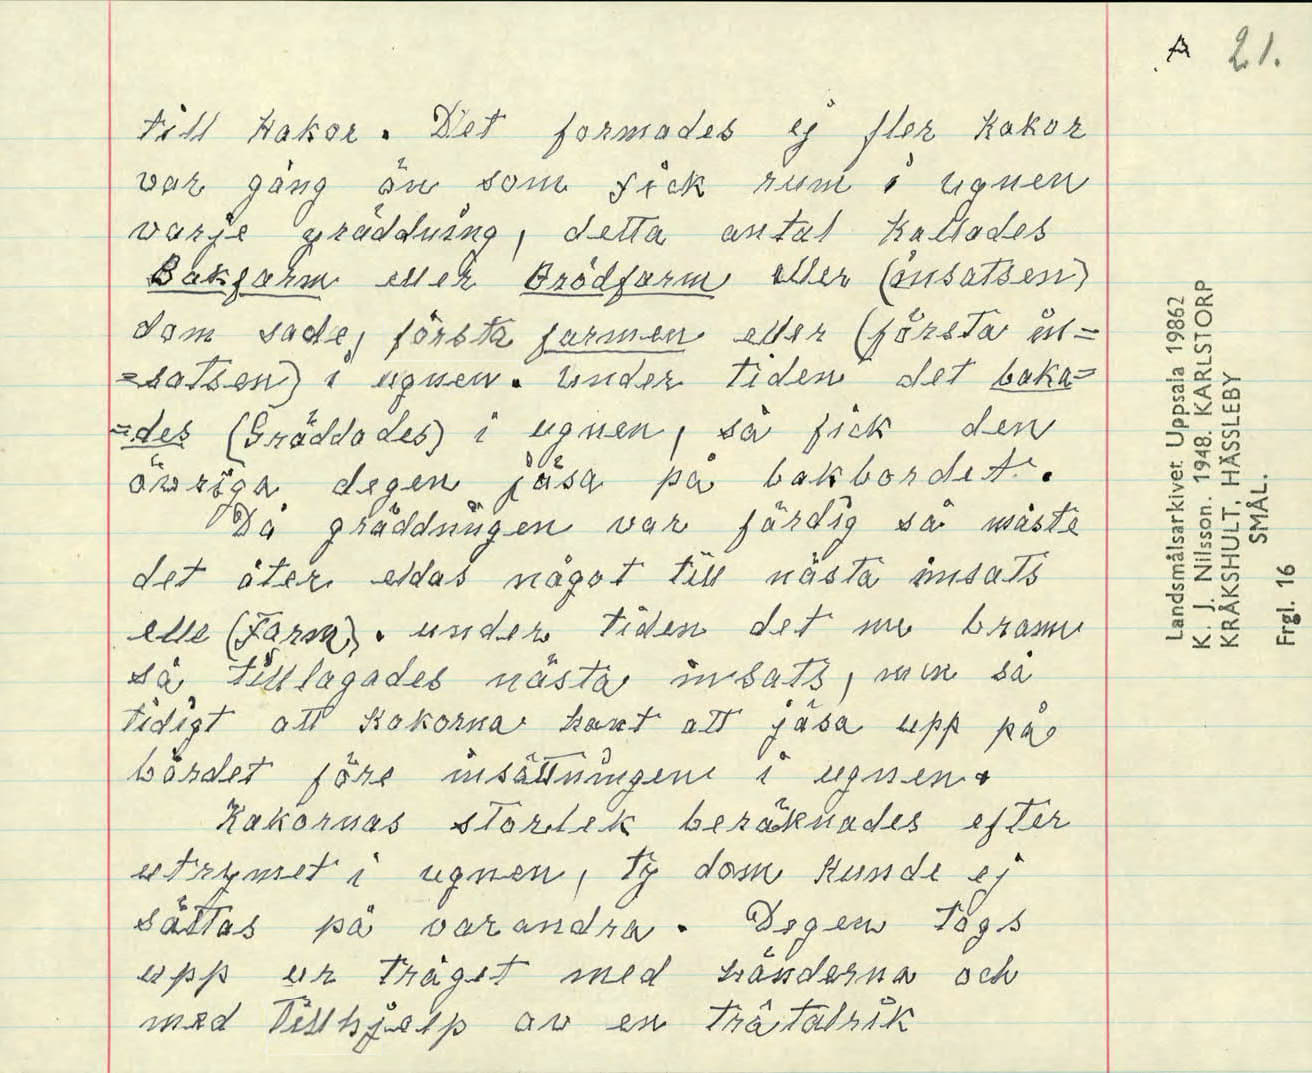 A 21.
till kakor. Det formades ej fler kakor
var gång än som fick rum i ugnen
varje gräddning, detta antal kallades
Bakfarm eller Brödfarm eller (insatsen)
dom sade, första farmen eller (första in=
=satsen) i ugnen. Under tiden det baka=
=des (Gräddades) i ugnen, så fick den
övriga degen jäsa på bakbordet.
Då gräddningen var färdig så måste
det åter eldas något till nästa insats
elle (Farm). under tiden det nu brann
så tillagades nästa insats, men så
tidigt att kakorna hant att jäsa upp på
bordet före insättningen i ugnen.
Kakornas storlek beräknades efter
utrymet i ugnen, ty dom kunde ej
sättas på varandra. Degen togs
upp ur tråget med händerna och
med tillhjelp av en trätalrik
Landsmålsarkivet Uppsala 19862
K. J. Nilsson. 1948. KARLSTORP
KRÅKSHULT, HÄSSLEBY
SMÅL.
Frgl. 16